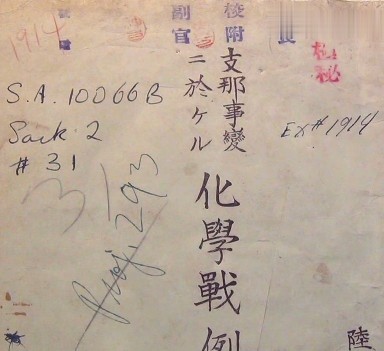 1914
副官
校附
長
極秘
支那事變
ニ於ケル
化學戰例
S.A. 10066B
Sack 2
# 31
Ex# 1914
293
陸